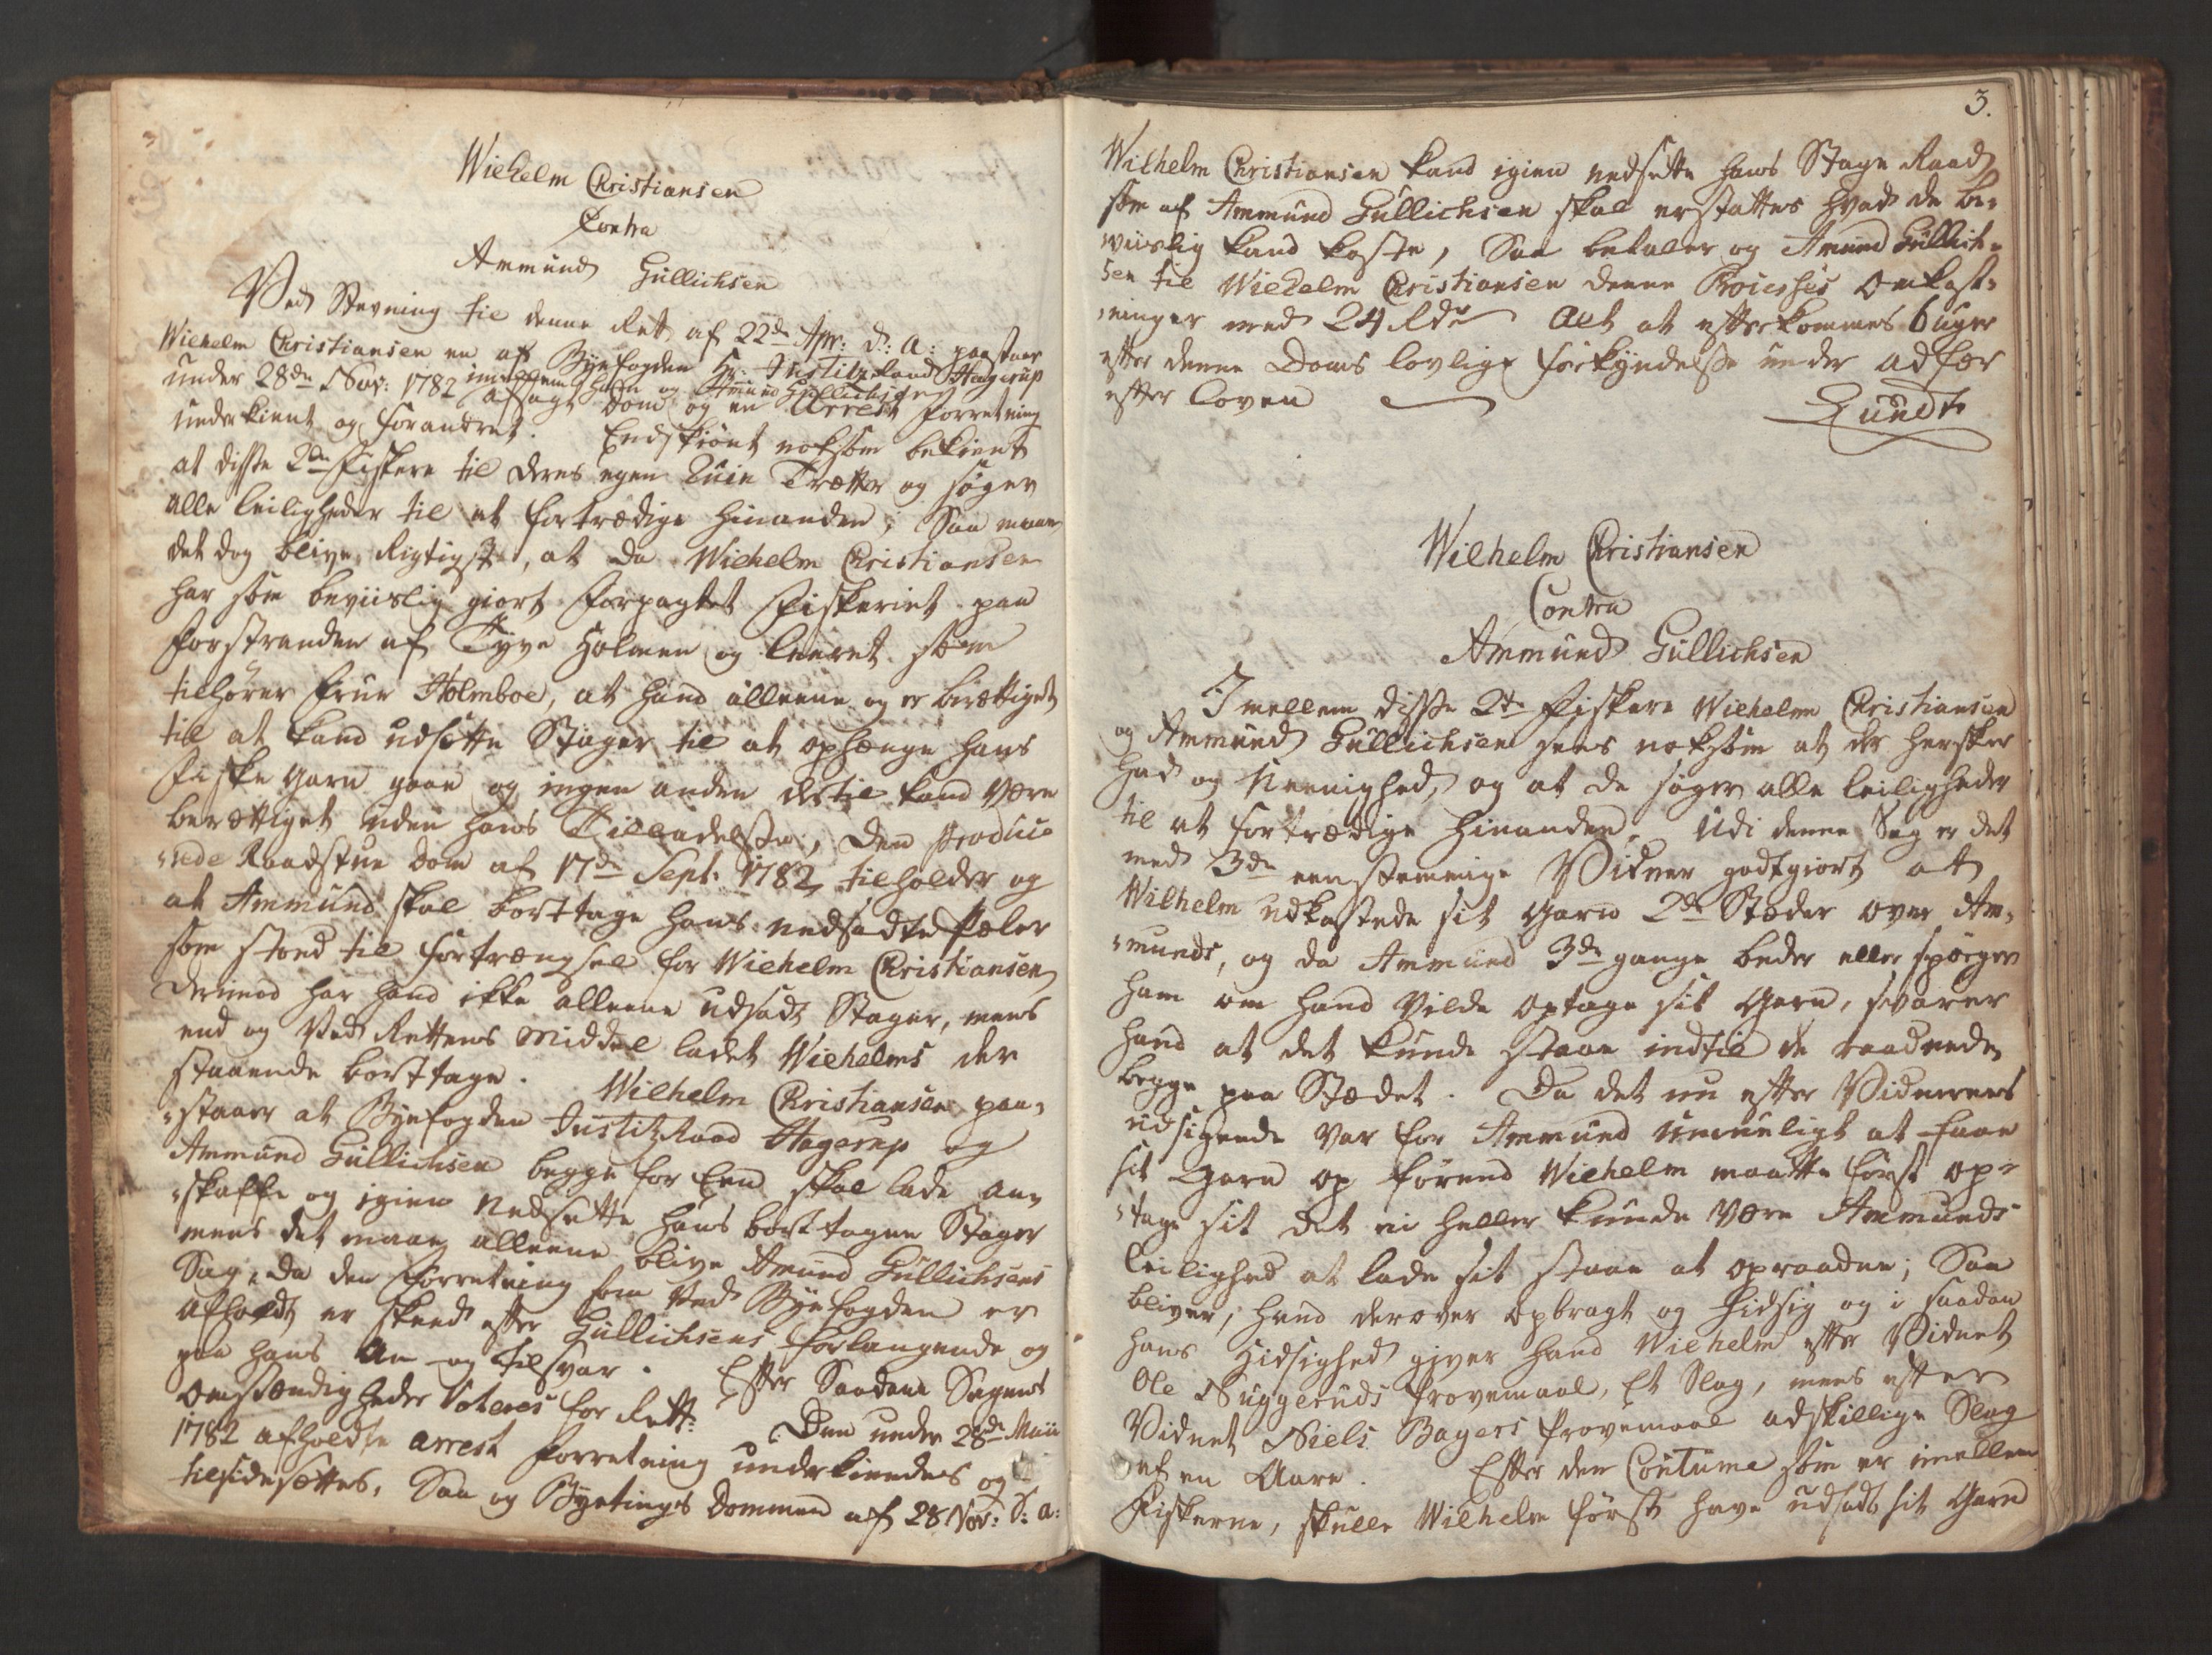 Wilhelm Christiansen
Contra
Ammund Gullichsen
Ved Stevning til denne Rett af 22de Apr: d: a: paastaar
Wilhelm Christiansen en af Byefogden Hr: Justitzraad Hagerup
under 28de Nov: 1782 imellem ham og Amund Gullichsen
afsagt Dom og en Arrest Forretning
underkient og forandret. Endskiønt noksom bekient
at disse 2de Fiskere til deres egen Ruin Trætter og søger
alle leiligheder til at fortrædige hinanden; Saa maae
det dog blive Rigtigst, at da Wilhelm Christiansen
har som beviislig giort Forpagtet Fiskeriet paa
Forstranden af Tyve Holmen og leeret som
tilhører Frue Holmboe, at hand alleene og er berettiget
til at kand udsætte Stager til at ophænge hans
Fiske Garn paa og ingen anden dertil kand være
berettiget uden hans Tilladelse; Den produce-
rede Raadstue Dom af 17de Sept: 1782 tilholder og
at Ammund skal borttage hans nedsadte Pæler
som stoed til fortrængsel for Wilhelm Christiansen
derimod har hand ikke alleene udsadt Stager, mens
end og Ved Rettens Middel ladet Wilhelms der
staaende borttage. Wilhelm Christiansen paa-
staaer at Byefogden Justitzraad Hagerup og
Ammund Gullichsen begge for Een skal lade an-
skaffe og igien Nedsætte hans borttagne Stager
mens det maae alleene blive Amund Gullichsens
Sag, da den Forretning som Ved Byefogden er
afholdt er skeed efter Gullichsens forlangende og
paa hans An og Tilsvar. Efter Saadane Sagens
Omstændigheder Voteres for Rett: Den under 28de Maii
1782 afholdte Arrest Forretning underkiendes og
tilsidesættes, Saa og Byetings Dommen af 28 Nov: d: a:
3.
Wilhelm Christiansen kand igien nedsætte hans Stage Raad
som af Ammund Gullichsen skal erstattes hvad de be-
viislig kand koste, Saa betaler og Amund Gullich-
sen til Wilhelm Christiansen denne Processes Omkost-
ninger med 24 Rdr Alt at efterkommes 6 uger
efter denne Doms lovlige Forkyndelse under Adfær
efter Loven
Lundt
Wilhelm Christiansen
Contra
Ammund Gullichsen
Imellem disse 2de Fiskere Wilhelm Christiansen
og Ammund Gullichsen sees noksom at der hersker
had og Ueenighed, og at de søger alle leiligheder
til at fortrædige hinanden. Udi denne Sag er det
med 3de eenstemmige Vidner godtgiort at
Wilhelm udkastede sit Garn 2de Stæder over Am-
munds, og da Ammund 3de gange beder eller spørger
ham om hand Vilde optage sit Garn, svarer
hand at det kunde staae indtil de raadnede
begge paa Stædet. Da det nu efter Vidnernes
udsigende var for Ammund umueligt at faae
sit Garn op førend Wilhelm maatte først op-
tage sit det ei heller kunde være Ammunds
leilighed at lade sit staae at opraadne; Saa
bliver, hand derover opbragt og hidsig og i saadan
hans Hidsighed giver hand Wilhelm efter Vidnet
Ole Nuggeruds Provemaal, Et Slag, mens efter
Vidnet Niels Bagers Provemaal adskillige Slag
af en Aare. Efter den Coutume som er imellem
Fiskerne, skulle Wilhelm først have udsadt sit Garn